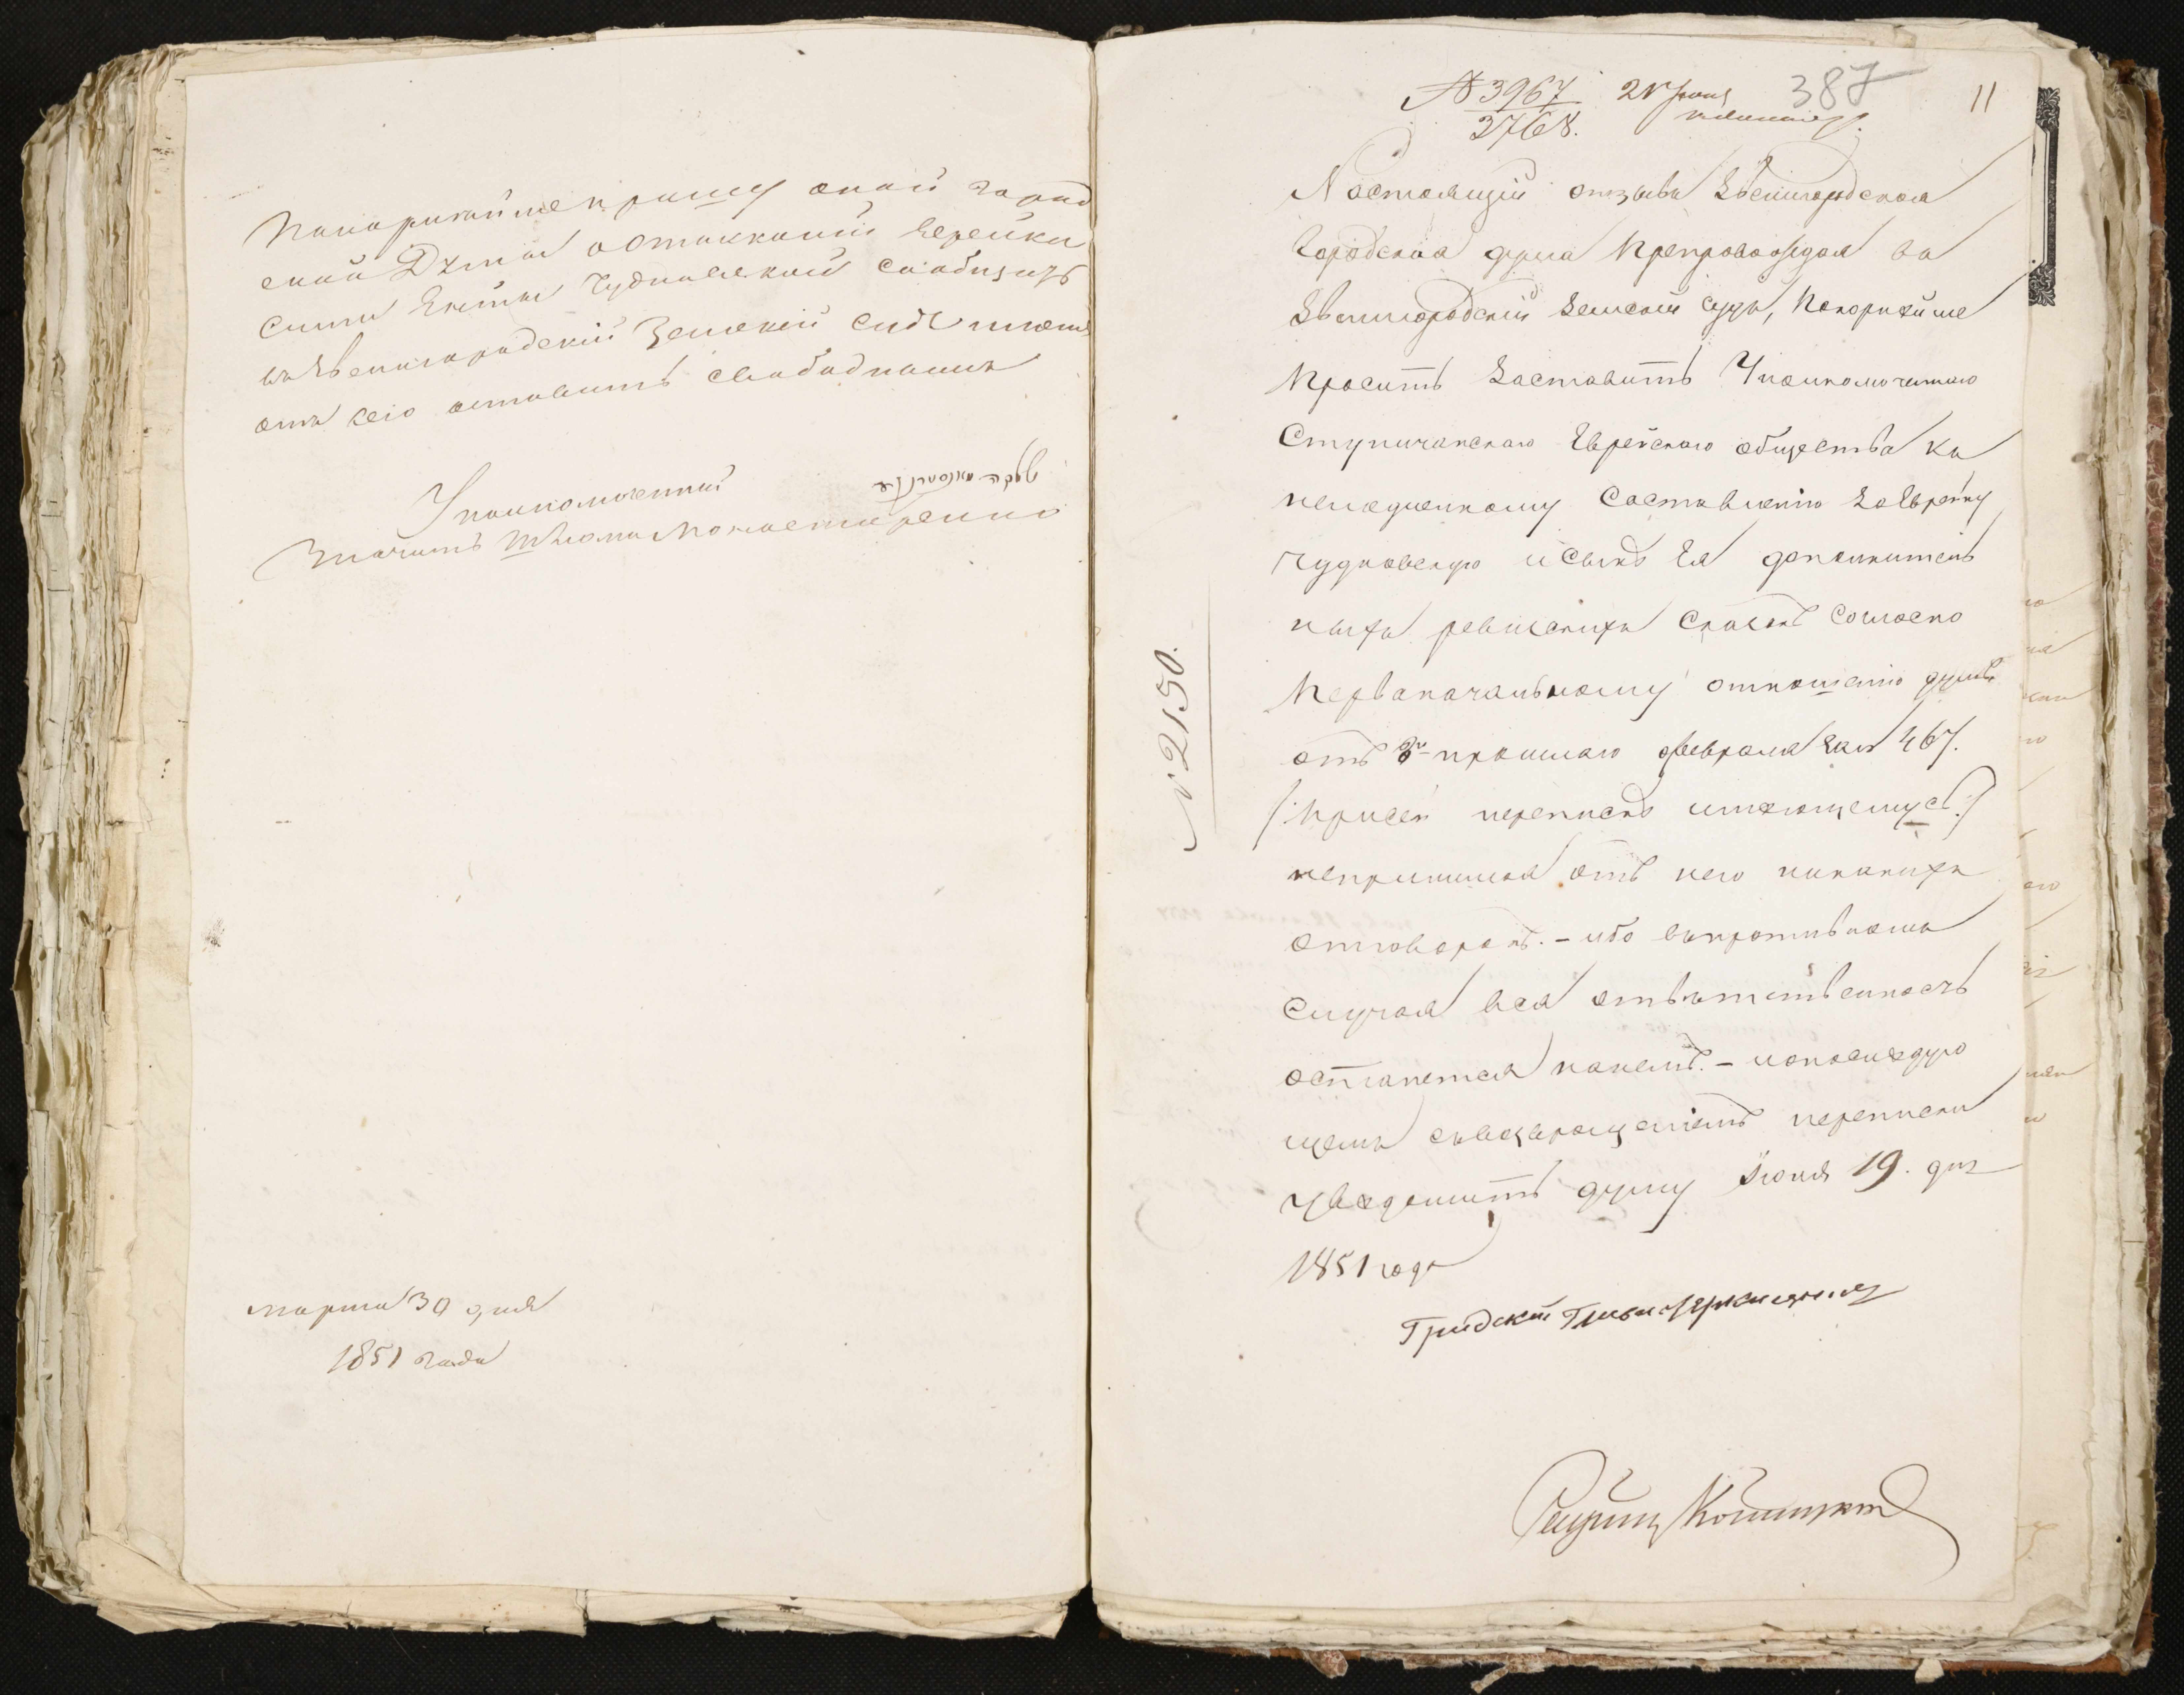 Покорнѣйше прошу оной город
ской Думы о таковой Еврейки
сыны Ейтты Чудновской сообщить
въ Звенигородскій Земскій судъ и меня
отъ сего оставить свободнымъ
Уполномоченный
Значитъ Шлома Монастиренко
Марта 30 дня
1851 года
№ 3967 21 Іюня 387 11
2768.
Настоящій отзывъ Звенигородская
Городская дума Препровождая въ
Звенигородскій Земскій судъ, Покорнѣйше
Проситъ Заставить Уполномоченнаго
Ступичанскаго Еврейскаго общества къ
немедленному Составленію За Еврейку
Чудновскую и Сынъ Ея дополнитель
ныхъ ревизскихъ Сказокъ Согласно
Первоначальному отношенію думы
отъ 8го прошлаго Февраля за № 467.
/:При сей перепискѣ имѣющемусь:/
непринимая отъ него никакихъ
отговорокъ. - ибо въ противномъ
Случаѣ вся отвѣтственность
останется на немъ. - и о послѣдую
щемъ съ возвращеніемъ переписки
увѣдомить думу Іюня 19. дня
1851 года
Градскій Глава
№ 2150.